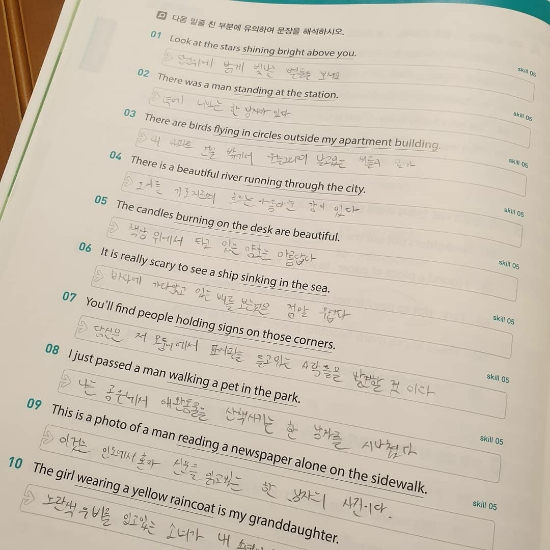 다음 밑줄 친 부분에 유의하여 문장을 해석하시오.
01 Look at the stars shining bright above you.
밝게 빛나는 별들을 보세요
skill 05
02 There was a man standing at the station.
역에 서있는 한 남자가 있다
skill 05
03 There are birds flying in circles outside my apartment building.
내 아파트 건물 밖에서
skill 05
04 There is a beautiful river running through the city.
도시를 가로지르며 흐르는 아름다운 강이 있다
skill 05
05 The candles burning on the desk are beautiful.
책상 위에서 타고 있는 양초는 아름답다
skill 05
06 It is really scary to see a ship sinking in the sea.
바다에 가라앉고 있는 배를 보는것은 정말 무섭다
skill 05
07 You'll find people holding signs on those corners.
당신은 저 모퉁이에서 표지판을 들고있는 사람들을 발견할 것 이다
skill 05
08 I just passed a man walking a pet in the park.
나는 공원에서 애완동물을 산책시키는 한 남자를 지나쳤다
skill 05
09 This is a photo of a man reading a newspaper alone on the sidewalk.
이것은 인도에서 혼자 신문을 읽고있는 한 남자의 사진이다.
skill 05
10 The girl wearing a yellow raincoat is my granddaughter.
노란색 우비를 입고있는 소녀가 내